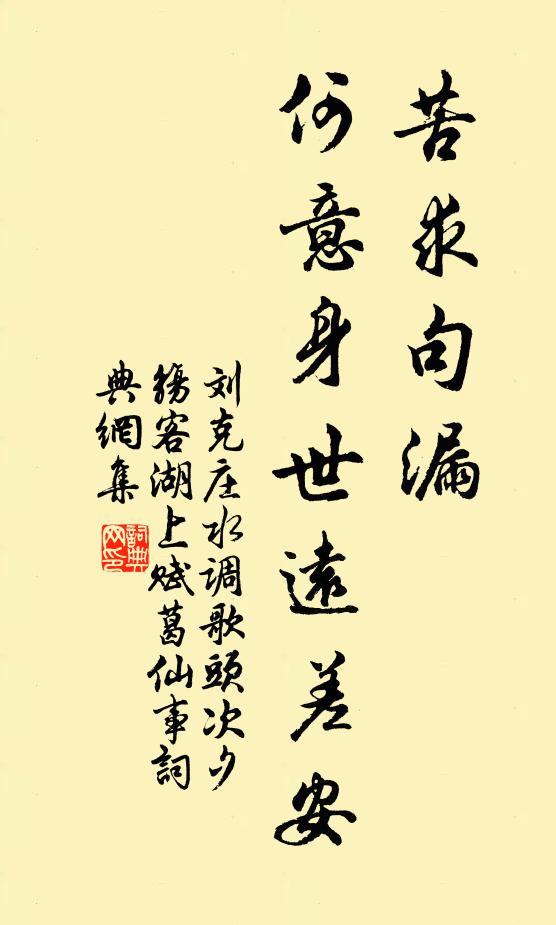 苦求句漏
何意身世遠差安
刘克庄水调歌頭次夕
觞客湖上赋葛仙事詞
典網集
詞典
网印